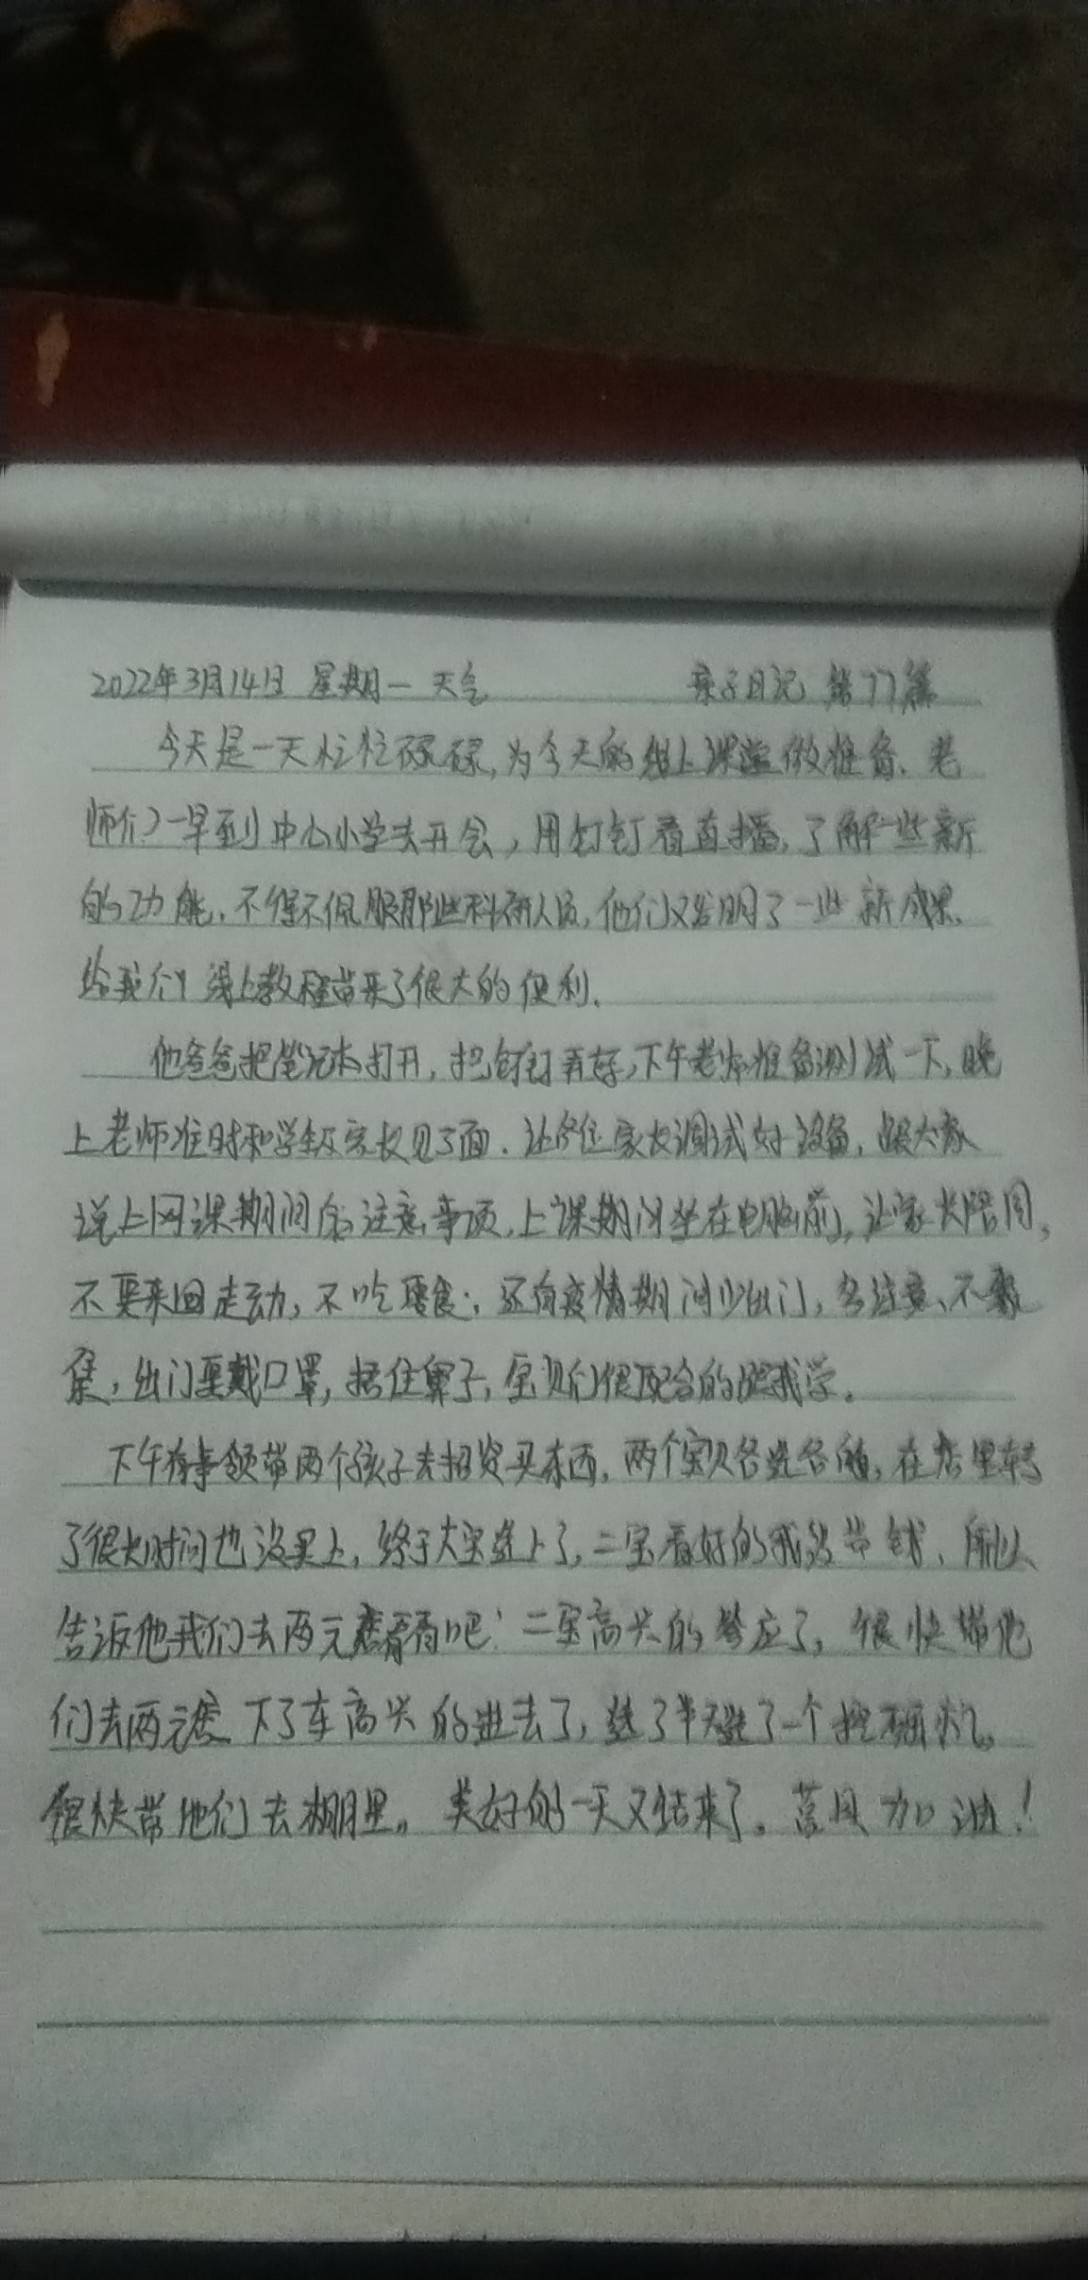 2022年3月14日 星期一 天气 亲子日记 第77篇
今天是一天忙忙碌碌,为今天的线上课堂做准备、老
师们一早到中心小学去开会,用钉钉看直播,了解一些新
的功能,不得不佩服那些科研人员,他们又发明了一些新成果,
给我们线上教程带来了很大的便利、
他爸爸把笔记本打开,把钉钉弄好,下午老师准备测试一下,晚
上老师准时和学生家长见了面.让各位家长调试好设备,跟大家
说上网课期间的注意事项,上课期间坐在电脑前,让家长陪同,
不要来回走动,不吃零食;还有疫情期间少出门,多注意、不聚
集,出门要戴口罩,捂住鼻子,宝贝们很配合的跟我学。
下午有事领带两个孩子去招贤买东西,两个宝贝各选各的,在店里转
了很长时间也没买上,终于大宝选上了,二宝看好的我没带钱、所以
告诉他我们去两元店看看吧!二宝高兴的答应了,很快带他
们去两元店 下了车高兴的进去了,选了半天选了一个挖掘机。
很快带他们去棚里。美好的一天又结束了。 加油!